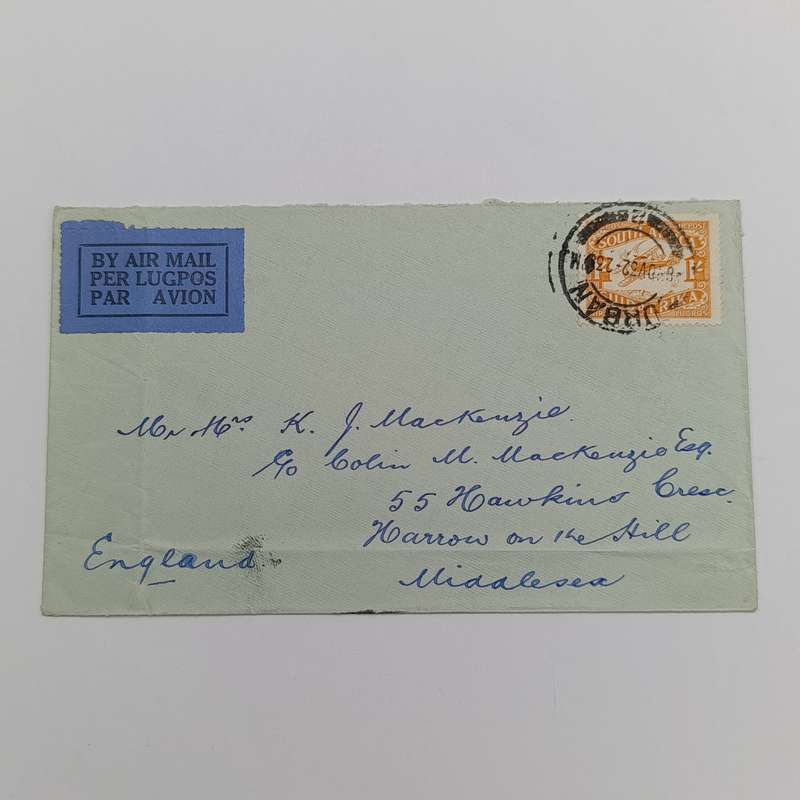 BY AIR MAIL
PER LUGPOS
PAR AVION
SOUTH AFRICA
1/-
DURBAN
Mr Mrs K. J. MacKenzie
C/o Colin M. MacKenzie Esq.
55 Hawkins Cresc.
Harrow on the Hill
Middlesex
England